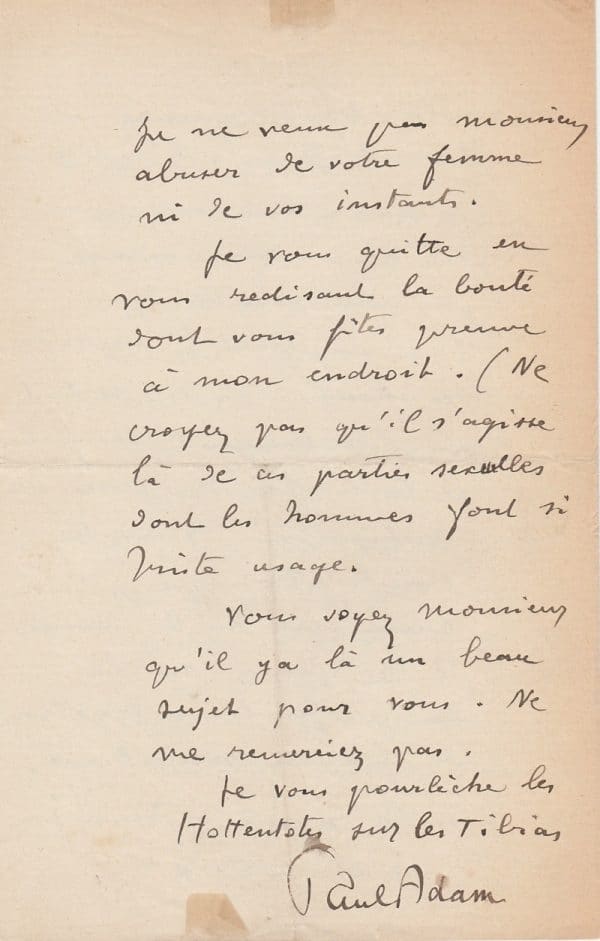 Je ne veux pas monsieur
abuser de votre femme
ni de vos instants.
Je vous quitte en
vous redisant la bonté
dont vous fîtes preuve
à mon endroit. (Ne
croyez pas qu'il s'agisse
là de ces parties sexuelles
dont les hommes font si
triste usage.
Vous voyez monsieur
qu'il y a là un beau
sujet pour vous. Ne
me remerciez pas.
Je vous pourlèche les
Hottentotes sur les Tibias
Paul Adam